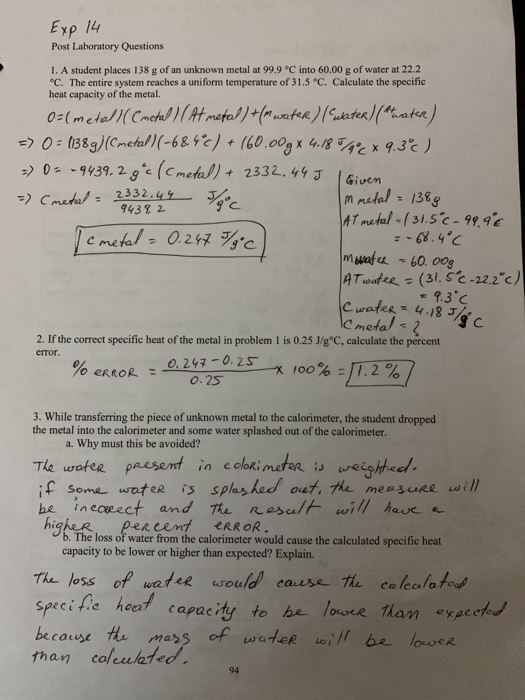 Exp 14
Post Laboratory Questions
1. A student places 138 g of an unknown metal at 99.9 °C into 60.00 g of water at 22.2
°C. The entire system reaches a uniform temperature of 31.5 °C. Calculate the specific
heat capacity of the metal.
0=(metal)(Cmetal)(Δt metal)+(mwater)(Cwater)(Δt water)
=> 0 = (138g)(Cmetal)(-68.4°c) + (60.00g x 4.18 J/g°c x 9.3°c)
=> 0 = -9439.2 g°c (Cmetal) + 2332.44 J
=> Cmetal = 2332.44 / 9439.2 J/g°c
Cmetal = 0.247 J/g°c
Given
m metal = 138g
ΔT metal = (31.5°C - 99.9°c
= -68.4°C
mwater = 60.00g
ΔT water = (31.5°c-22.2°c)
= 9.3°C
Cwater = 4.18 J/g°C
Cmetal = ?
2. If the correct specific heat of the metal in problem 1 is 0.25 J/g°C, calculate the percent
error.
% ERROR = 0.247-0.25 / 0.25 x 100% = 1.2%
3. While transferring the piece of unknown metal to the calorimeter, the student dropped
the metal into the calorimeter and some water splashed out of the calorimeter.
a. Why must this be avoided?
The water present in colorimeter is weighted.
if some water is splashed out, the measure will
be incorect and the result will have a
higher percent ERROR.
b. The loss of water from the calorimeter would cause the calculated specific heat
capacity to be lower or higher than expected? Explain.
The loss of water would cause the calculated
specific heat capacity to be lower than expected
because the mass of water will be lower
than calculated.
94